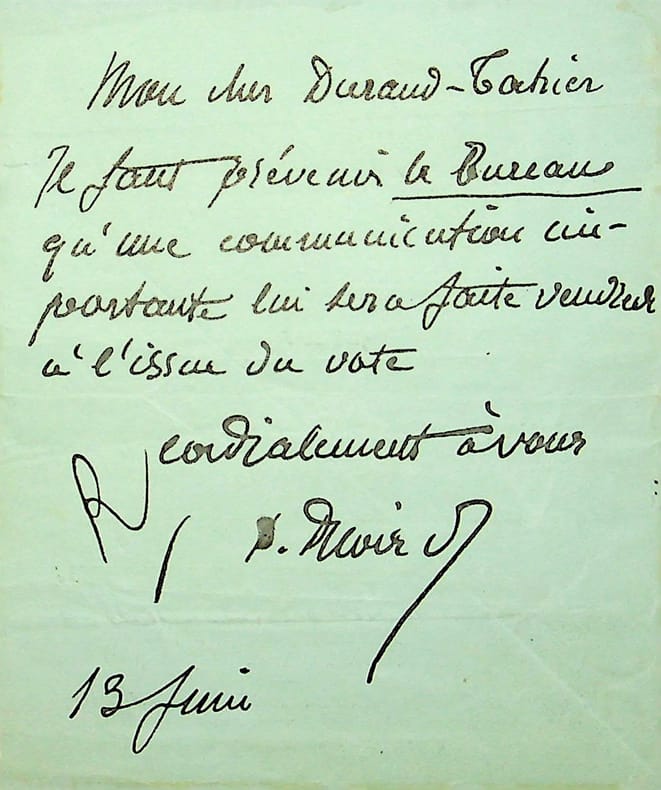 Mon cher Durand-Tahier
Il faut prévenir le Bureau
qu'une communication im-
portante lui sera faite vendredi
à l'issue du vote
cordialement à vous
R
13 Juin